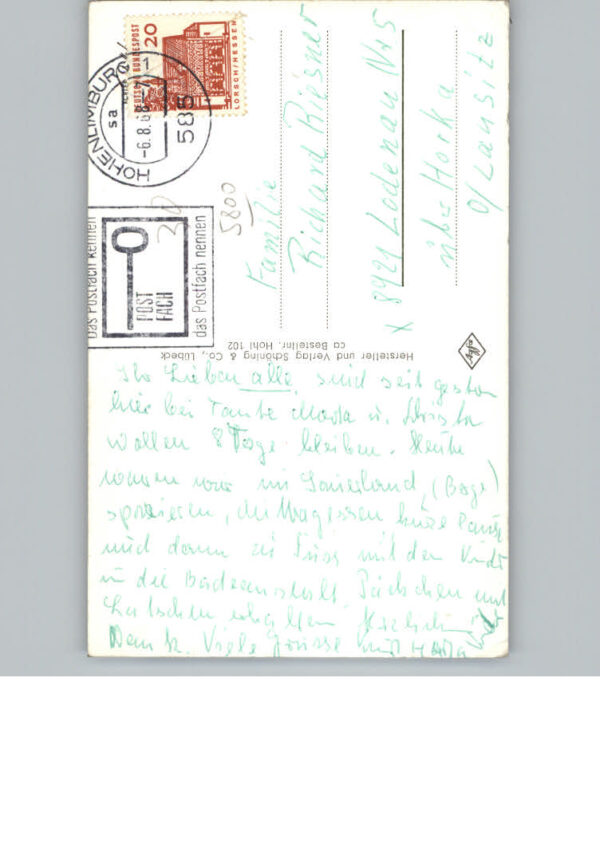 DEUTSCHE BUNDESPOST
20
LORSCH/HESSEN
HOHENLIMBURG
1
sa
-6.8.
585
das Postfach kennen
POST
FACH
das Postfach nennen
30
5800
Familie
Richard Riesner
x 8921 Lodenau Nr 5
über Horka
O/Lausitz
Hersteller und Verlag Schöning & Co., Lübeck
ca Bestellnr. Hohl 102
Agfa
Ihr Lieben alle, sind seit gestern
hier bei Tante u.
wollen 8 Tage bleiben. Heute
waren wir im Sauerland, (Berge)
spazieren, Mittagessen kurze Pause
und dann zu Fuss mit den
in die Badeanstalt. Päckchen und
erhalten. Herzlichen
Dank. Viele Grüsse